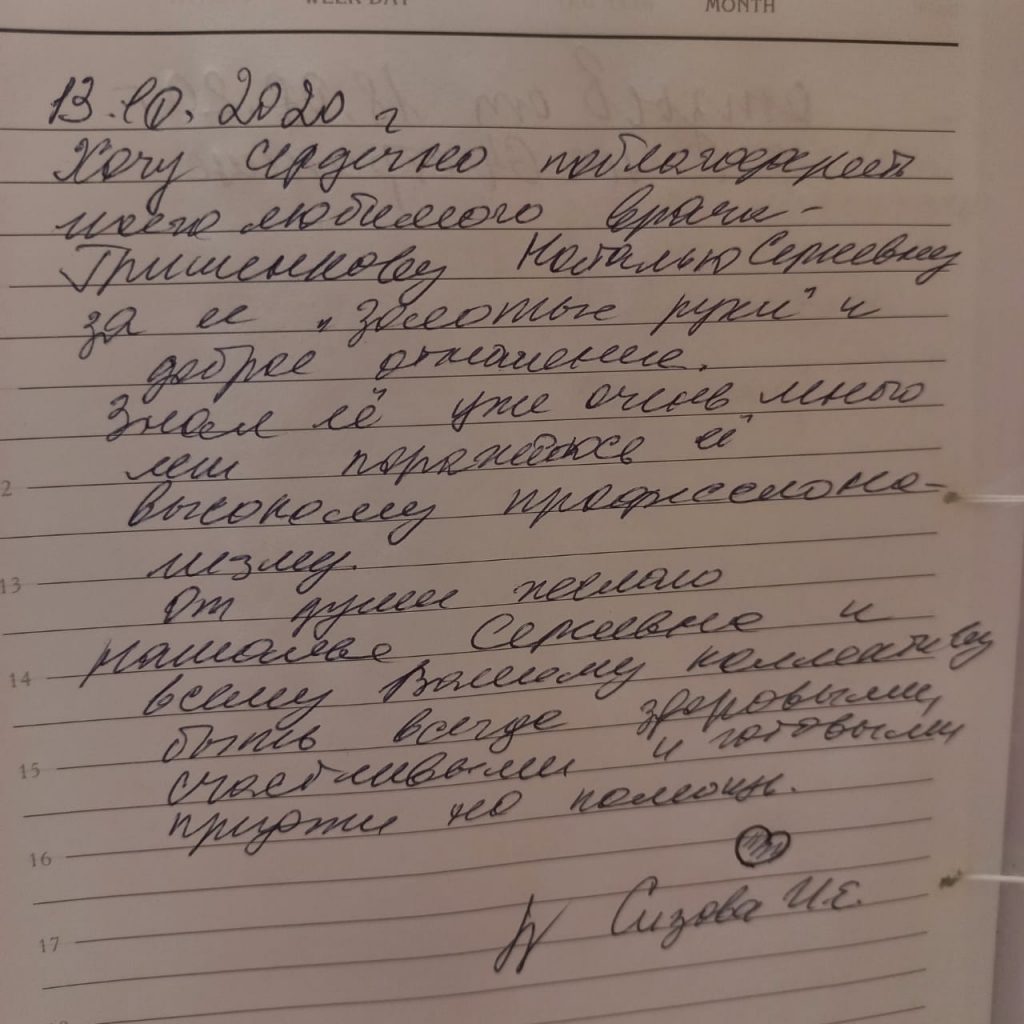 WEEK DAY
MONTH
13.10.2020 г
Хочу сердечно поблагодарить
моего любимого врача -
Гришенкову Наталью Сергеевну
за ее "золотые руки" и
доброе отношение.
Знаем её уже очень много
лет поражаюсь её
высокому профессиона-
лизму.
От души желаю
Наталье Сергеевне и
всему Вашему коллективу
быть всегда здоровыми,
счастливыми и готовыми
придти на помощь.
Сизова И.Е.
2
13
14
15
16
17